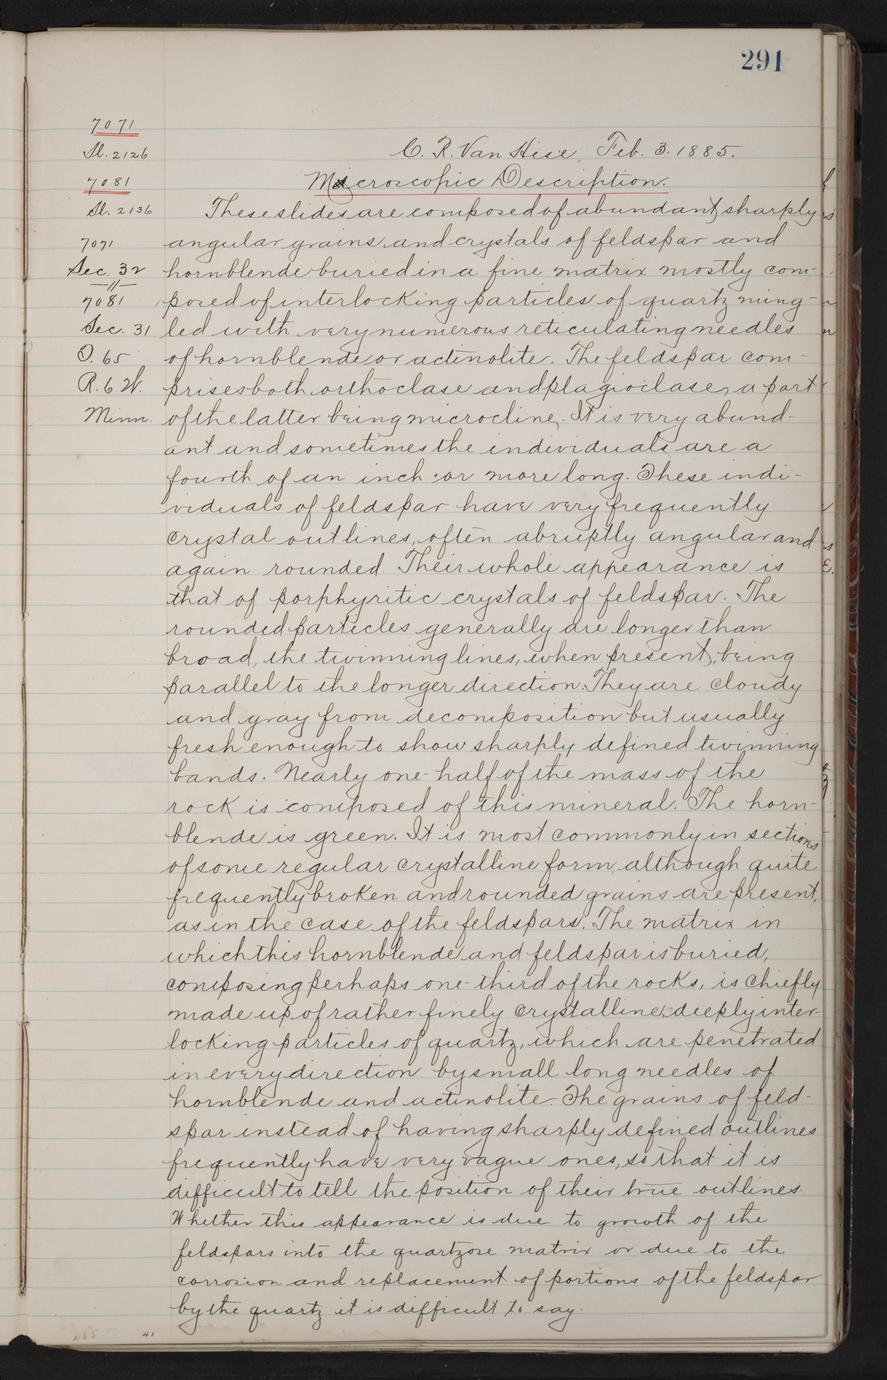 291
7071
Sl. 2126
7081
Sl. 2136
7071
Sec. 32
"
7081
Sec. 31
O. 65
R. 6 W.
Minn.
C. R. Van Hise, Feb. 3. 1885.
Microscopic Description.
These slides are composed of abundant, sharply
angular grains and crystals of feldspar and
hornblende buried in a fine matrix mostly com-
posed of interlocking particles of quartz ming-
led with very numerous reticulating needles
of hornblende or actinolite. The feldspar com-
prises both orthoclase and plagioclase, a part
of the latter being microcline. It is very abund-
ant and sometimes the individuals are a
fourth of an inch or more long. These indi-
viduals of feldspar have very frequently
crystal outlines, often abruptly angular and
again rounded. Their whole appearance is
that of porphyritic crystals of feldspar. The
rounded particles generally are longer than
broad, the twinning lines, when present, being
parallel to the longer direction. They are cloudy
and gray from decomposition but usually
fresh enough to show sharply defined twinning
bands. Nearly one-half of the mass of the
rock is composed of this mineral. The horn-
blende is green. It is most commonly in sections
of some regular crystalline form, although quite
frequently broken and rounded grains are present,
as in the case of the feldspars. The matrix in
which this hornblende and feldspar is buried,
composing perhaps one-third of the rocks, is chiefly
made up of rather finely crystalline, deeply inter-
locking particles of quartz, which are penetrated
in every direction by small long needles of
hornblende and actinolite. The grains of feld-
spar instead of having sharply defined outlines
frequently have very vague ones, so that it is
difficult to tell the position of their true outlines.
Whether this appearance is due to growth of the
feldspars into the quartzose matrix or due to the
corrosion and replacement of portions of the feldspar
by the quartz it is difficult to say.